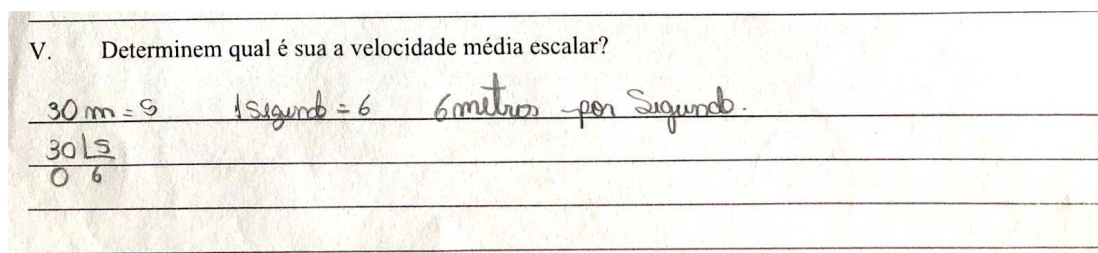 V. Determinem qual é sua a velocidade média escalar?
30 m = 5 1 Segundo = 6 6 metros por Segundo.
30 | 5
0 6